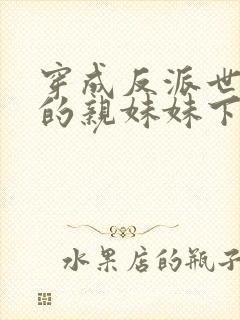 穿成反派世
的亲妹妹下
水果店的瓶子